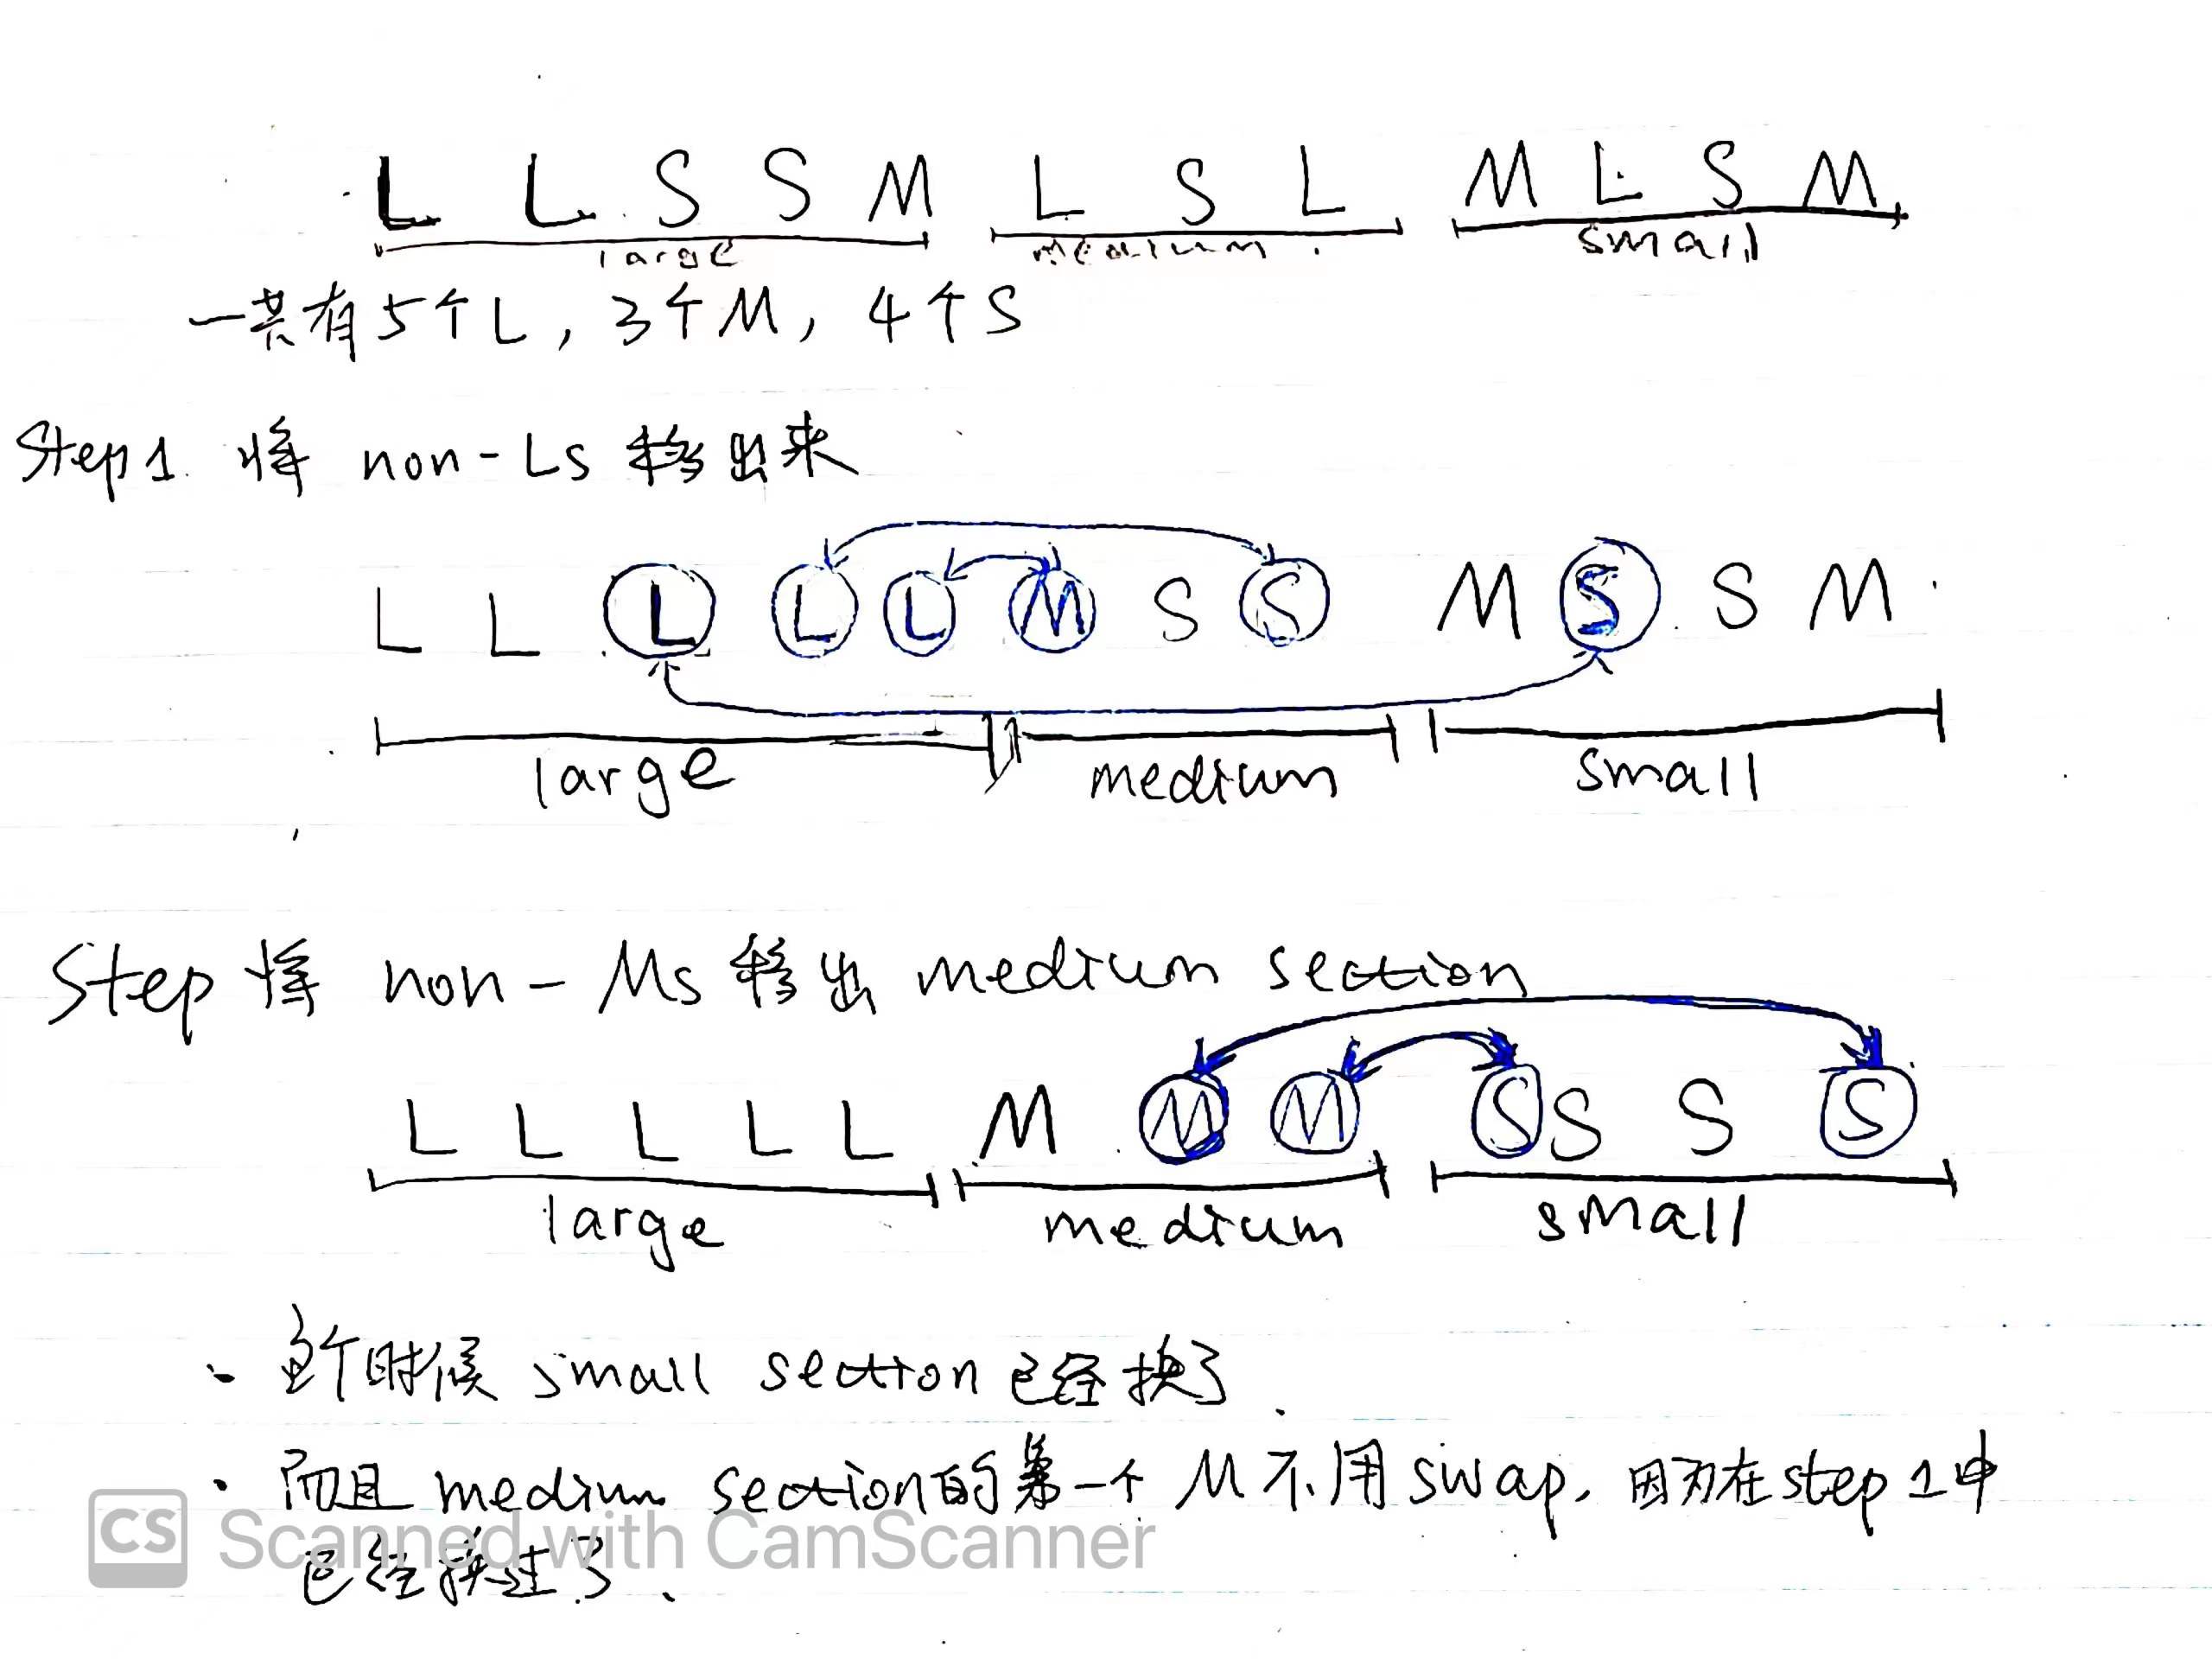 L L S S M L S L M L S M
large medium small
一共有5个L, 3个M, 4个S
Step1. 将 non-Ls 移出来
L L L L L M S S M S S M
large medium small
Step 将 non-Ms 移出 medium section
L L L L L M M M S S S S
large medium small
· 这个时候 small section 已经换了.
· 而且 medium section的第一个 M 不用 swap, 因为在step 1中
已经换过了.
CS Scanned with CamScanner